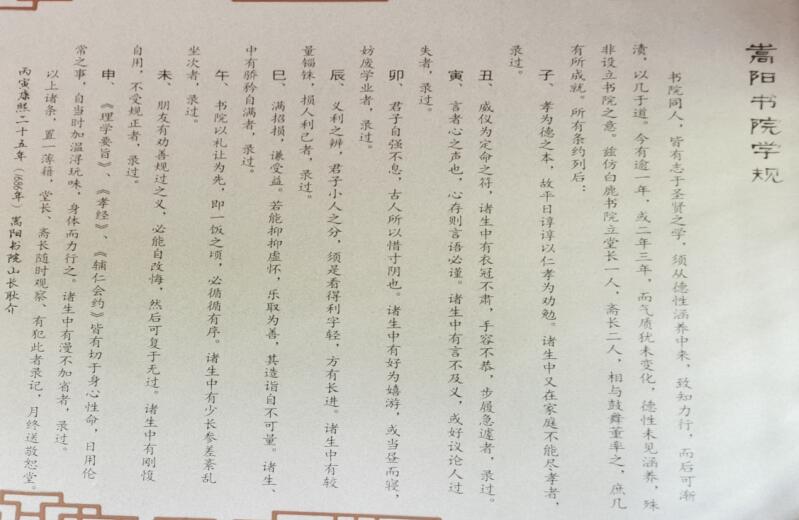 嵩阳书院学规
书院同人，皆有志于圣贤之学，须从德性涵养中来，致知力行，而后可渐
渍，以几于道。今有逾一年，或二年三年，而气质犹未变化，德性未见涵养，殊
非设立书院之意。兹仿白鹿书院立堂长一人，斋长二人，相与鼓舞董率之，庶几
有所成就。所有条约列后：
子、孝为德之本，故平日谆谆以仁孝为劝勉。诸生中又在家庭不能尽孝者，
录过。
丑、威仪为定命之符，诸生中有衣冠不肃，手容不恭，步履急遽者，录过。
寅、言者心之声也，心存则言语必谨。诸生中有言不及义，或好议论人过
失者，录过。
卯、君子自强不息，古人所以惜寸阴也。诸生中有好为嬉游，或当昼而寝，
妨废学业者，录过。
辰、义利之辨，君子小人之分，须是看得利字轻，方有长进。诸生中有较
量锱铢，损人利己者，录过。
巳、满招损，谦受益。若能抑抑虚怀，乐取为善，其造诣自不可量。诸生、
中有骄矜自满者，录过。
午、书院以礼让为先，即一饭之顷，必循循有序。诸生中有少长参差紊乱
坐次者，录过。
未、朋友有劝善规过之义，必能自改悔，然后可复于无过。诸生中有刚愎
自用，不受规正者，录过。
申、《理学要旨》、《孝经》、《辅仁会约》皆有切于身心性命，日用伦
常之事，自当时加温浔玩味，身体而力行之。诸生中有漫不加省者，录过。
以上诸条，置一薄籍，堂长、斋长随时观察、有犯此者录记，月终送敬恕堂。
丙寅康熙二十五年（1686年）嵩阳书院山长耿介